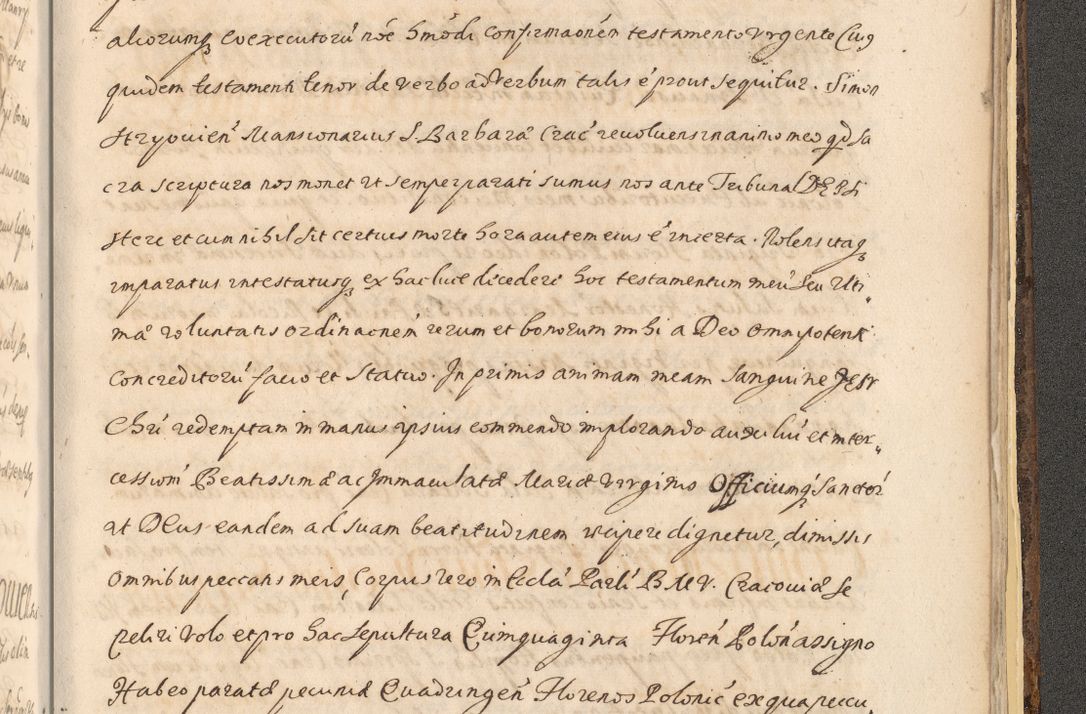 aliorumq coexecutorũ nõe hmõdi confirmaonẽm testamento vrgente Cuiq
quidem testamenti tenor de verbo ad verbum talis ẽ prout sequitur. Simon
Stryovień Mansionarius S. Barbaræ Crać revoluens in animo meo qd Sa
cra scriptura nos monet vt semper parati sumus nos ante Tribunal DEI Si
stere et cum nihil sit certius morte hora autem eius ẽ incerta. Nolens itaq
imparatus intestatusq ex hac luce decedere hoc testamentum meũ seu Vlti
mæ voluntatis ordinaonem rerum et bonorum mihi a Deo omnipotenti
concreditorũ facio et Statuo. In primis animam meam Sanguine JESV
Chri redemptam in manus ipsius commendo implorando auxiliũ et inter
cessionẽ Beatissimæ ac Immaculatæ Mariæ Virginis Officiumq Sanctorũ
vt DEus eandem ad suam beatitudinem recipere dignetur, dimissis
omnibus peccatis meis, Corpus vero in Eccla Parli B.M.V. Cracouiæ Se
peliri volo et pro hac sepultura Quinquaginta Floreń Poloń assigno
Habeo paratæ pecuniæ Quadringeń Florenos Polonić ex qua pecu